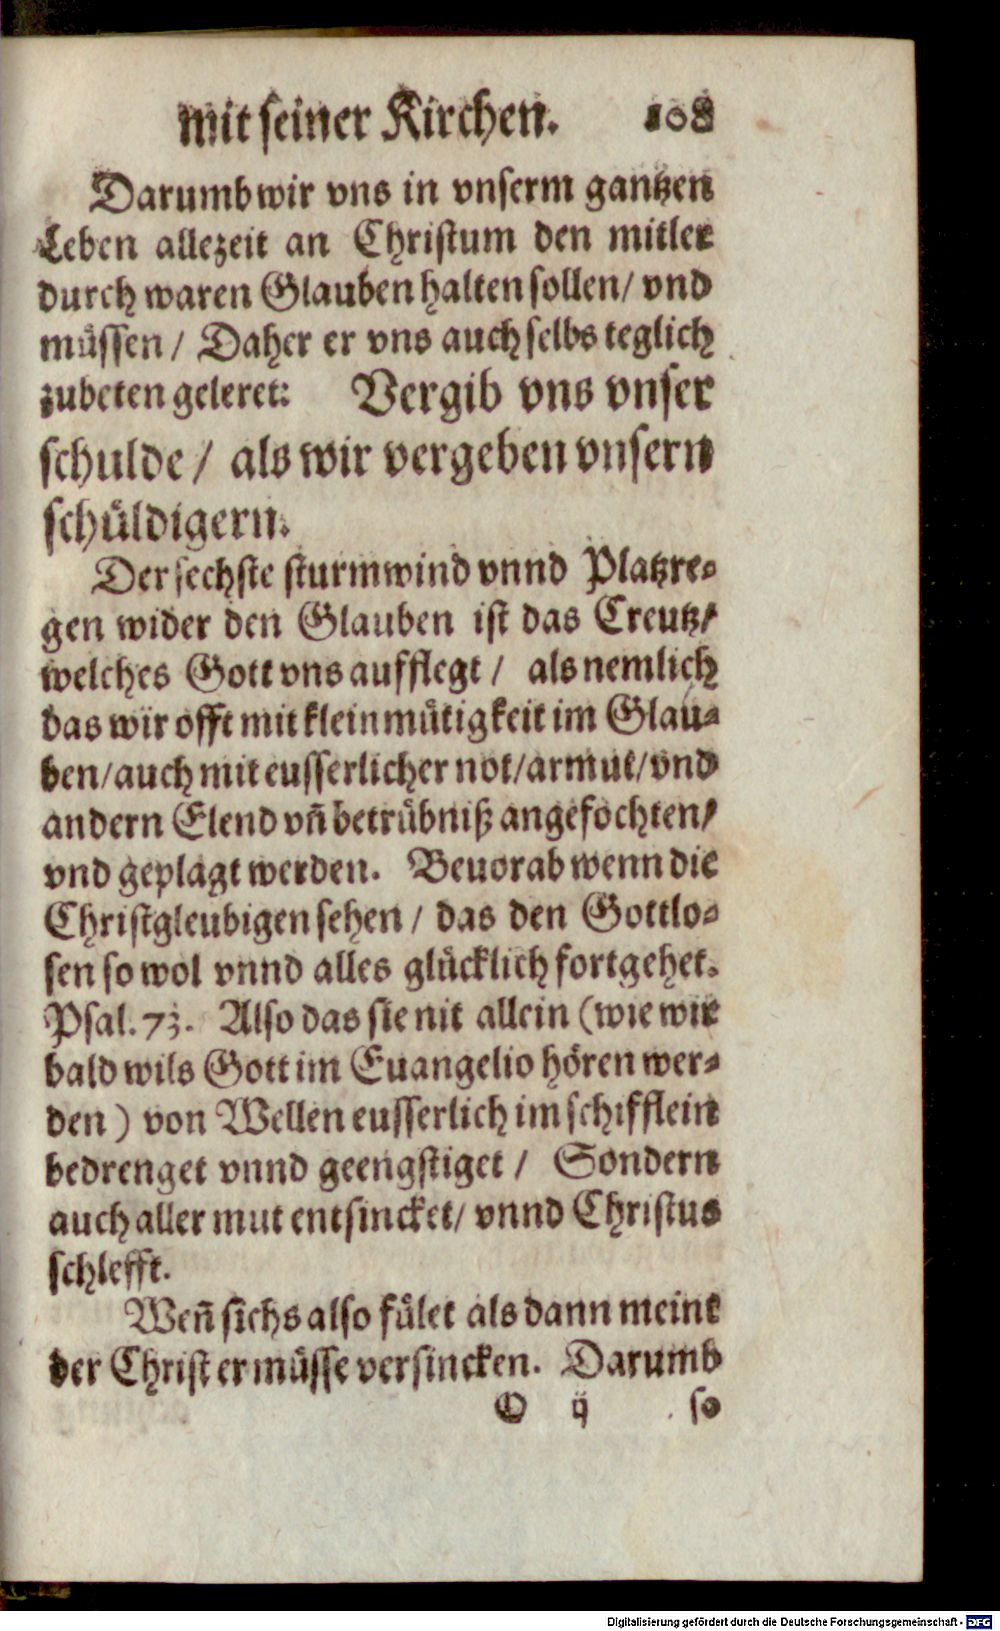 mit seiner Kirchen. 108
Darumb wir vns in vnserm gantzen
Leben allezeit an Christum den mitler
durch waren Glauben halten sollen/ vnd
müssen / Daher er vns auch selbs teglich
zubeten geleret: Vergib vns vnser
schulde / als wir vergeben vnsern
schüldigern.
Der sechste sturmwind vnnd Platzre-
gen wider den Glauben ist das Creutz/
welches Gott vns aufflegt / als nemlich
das wir offt mit kleinmütigkeit im Glau-
ben/ auch mit eusserlicher not/ armut/ vnd
andern Elend vn̄ betrübniß angefochten/
vnd geplagt werden. Beuorab wenn die
Christgleubigen sehen / das den Gottlo-
sen so wol vnnd alles glücklich fortgehet.
Psal. 73. Also das sie nit allein (wie wir
bald wils Gott im Euangelio hören wer-
den) von Wellen eusserlich im schifflein
bedrenget vnnd geengstiget / Sondern
auch aller mut entsincket/ vnnd Christus
schlefft.
Wen̄ sichs also fület als dann meint
der Christ er müsse versincken. Darumb
O ij so
Digitalisierung gefördert durch die Deutsche Forschungsgemeinschaft - DFG